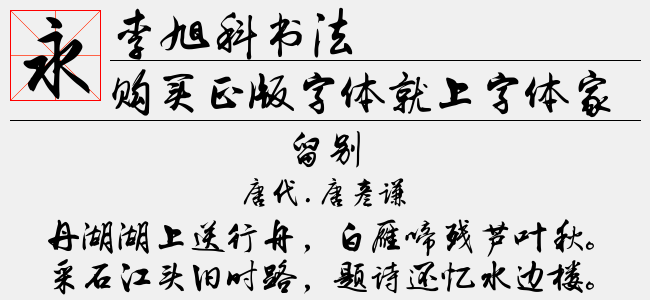 永
李旭科书法
购买正版字体就上字体家
留别
唐代.唐彦谦
丹湖湖上送行舟，白雁啼残芦叶秋。
采石江头旧时路，题诗还忆水边楼。